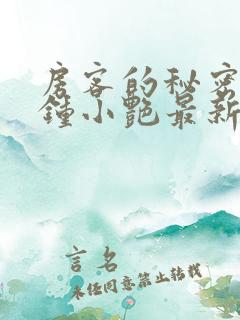 房客的秘密
鍾小艷最新
言名
未经同意禁止转载